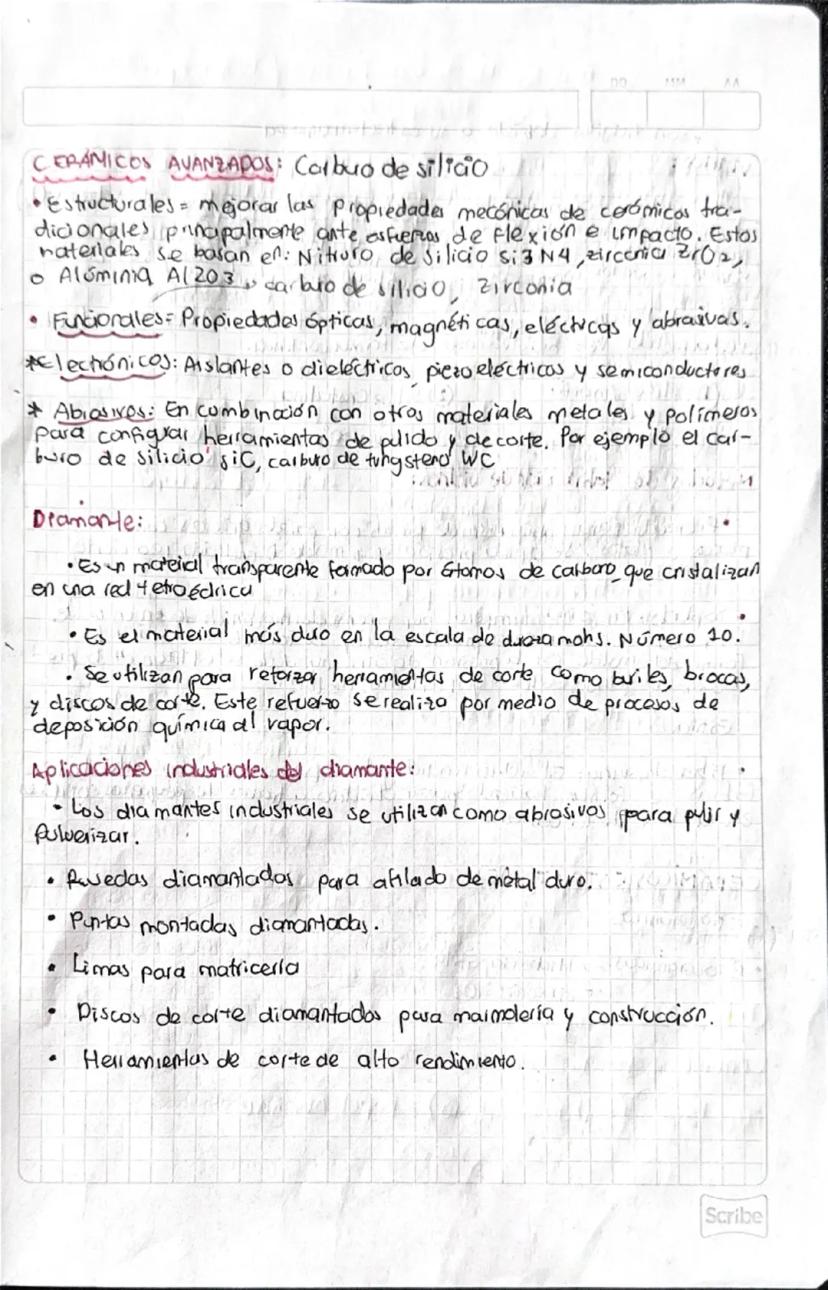 DD MM AA
CERÁMICOS AVANZADOS: Carburo de silicio
• Estructurales = mejorar las propiedades mecánicas de cerámicos tra-
dicionales principalmente ante esfuerzos de flexión e impacto. Estos
materiales se basan en: Nitruro de silicio Si3N4, zirconia ZrO2,
o Alúmina Al2O3, carburo de silicio, zirconia
• Funcionales = Propiedades ópticas, magnéticas, eléctricas y abrasivas.
* Electrónicos: Aislantes o dieléctricos, piezoeléctricos y semiconductores
* Abrasivos: En combinación con otros materiales metales y polímeros
para configurar herramientas de pulido y de corte. Por ejemplo el car-
buro de silicio SiC, carburo de tungsteno WC
Diamante:
• Es un material transparente formado por átomos de carbono que cristalizan
en una red tetraédrica
• Es el material más duro en la escala de dureza mohs. Número 10.
• Se utilizan para reforzar herramientas de corte como buriles, brocas,
y discos de corte. Este refuerzo se realiza por medio de procesos de
deposición química al vapor.
Aplicaciones industriales del diamante:
• Los diamantes industriales se utilizan como abrasivos para pulir y
Pulverizar.
• Ruedas diamantadas para afilado de metal duro.
• Puntas montadas diamantadas.
• Limas para matricería
• Discos de corte diamantados para marmolería y construcción.
• Herramientas de corte de alto rendimiento.
Scribe